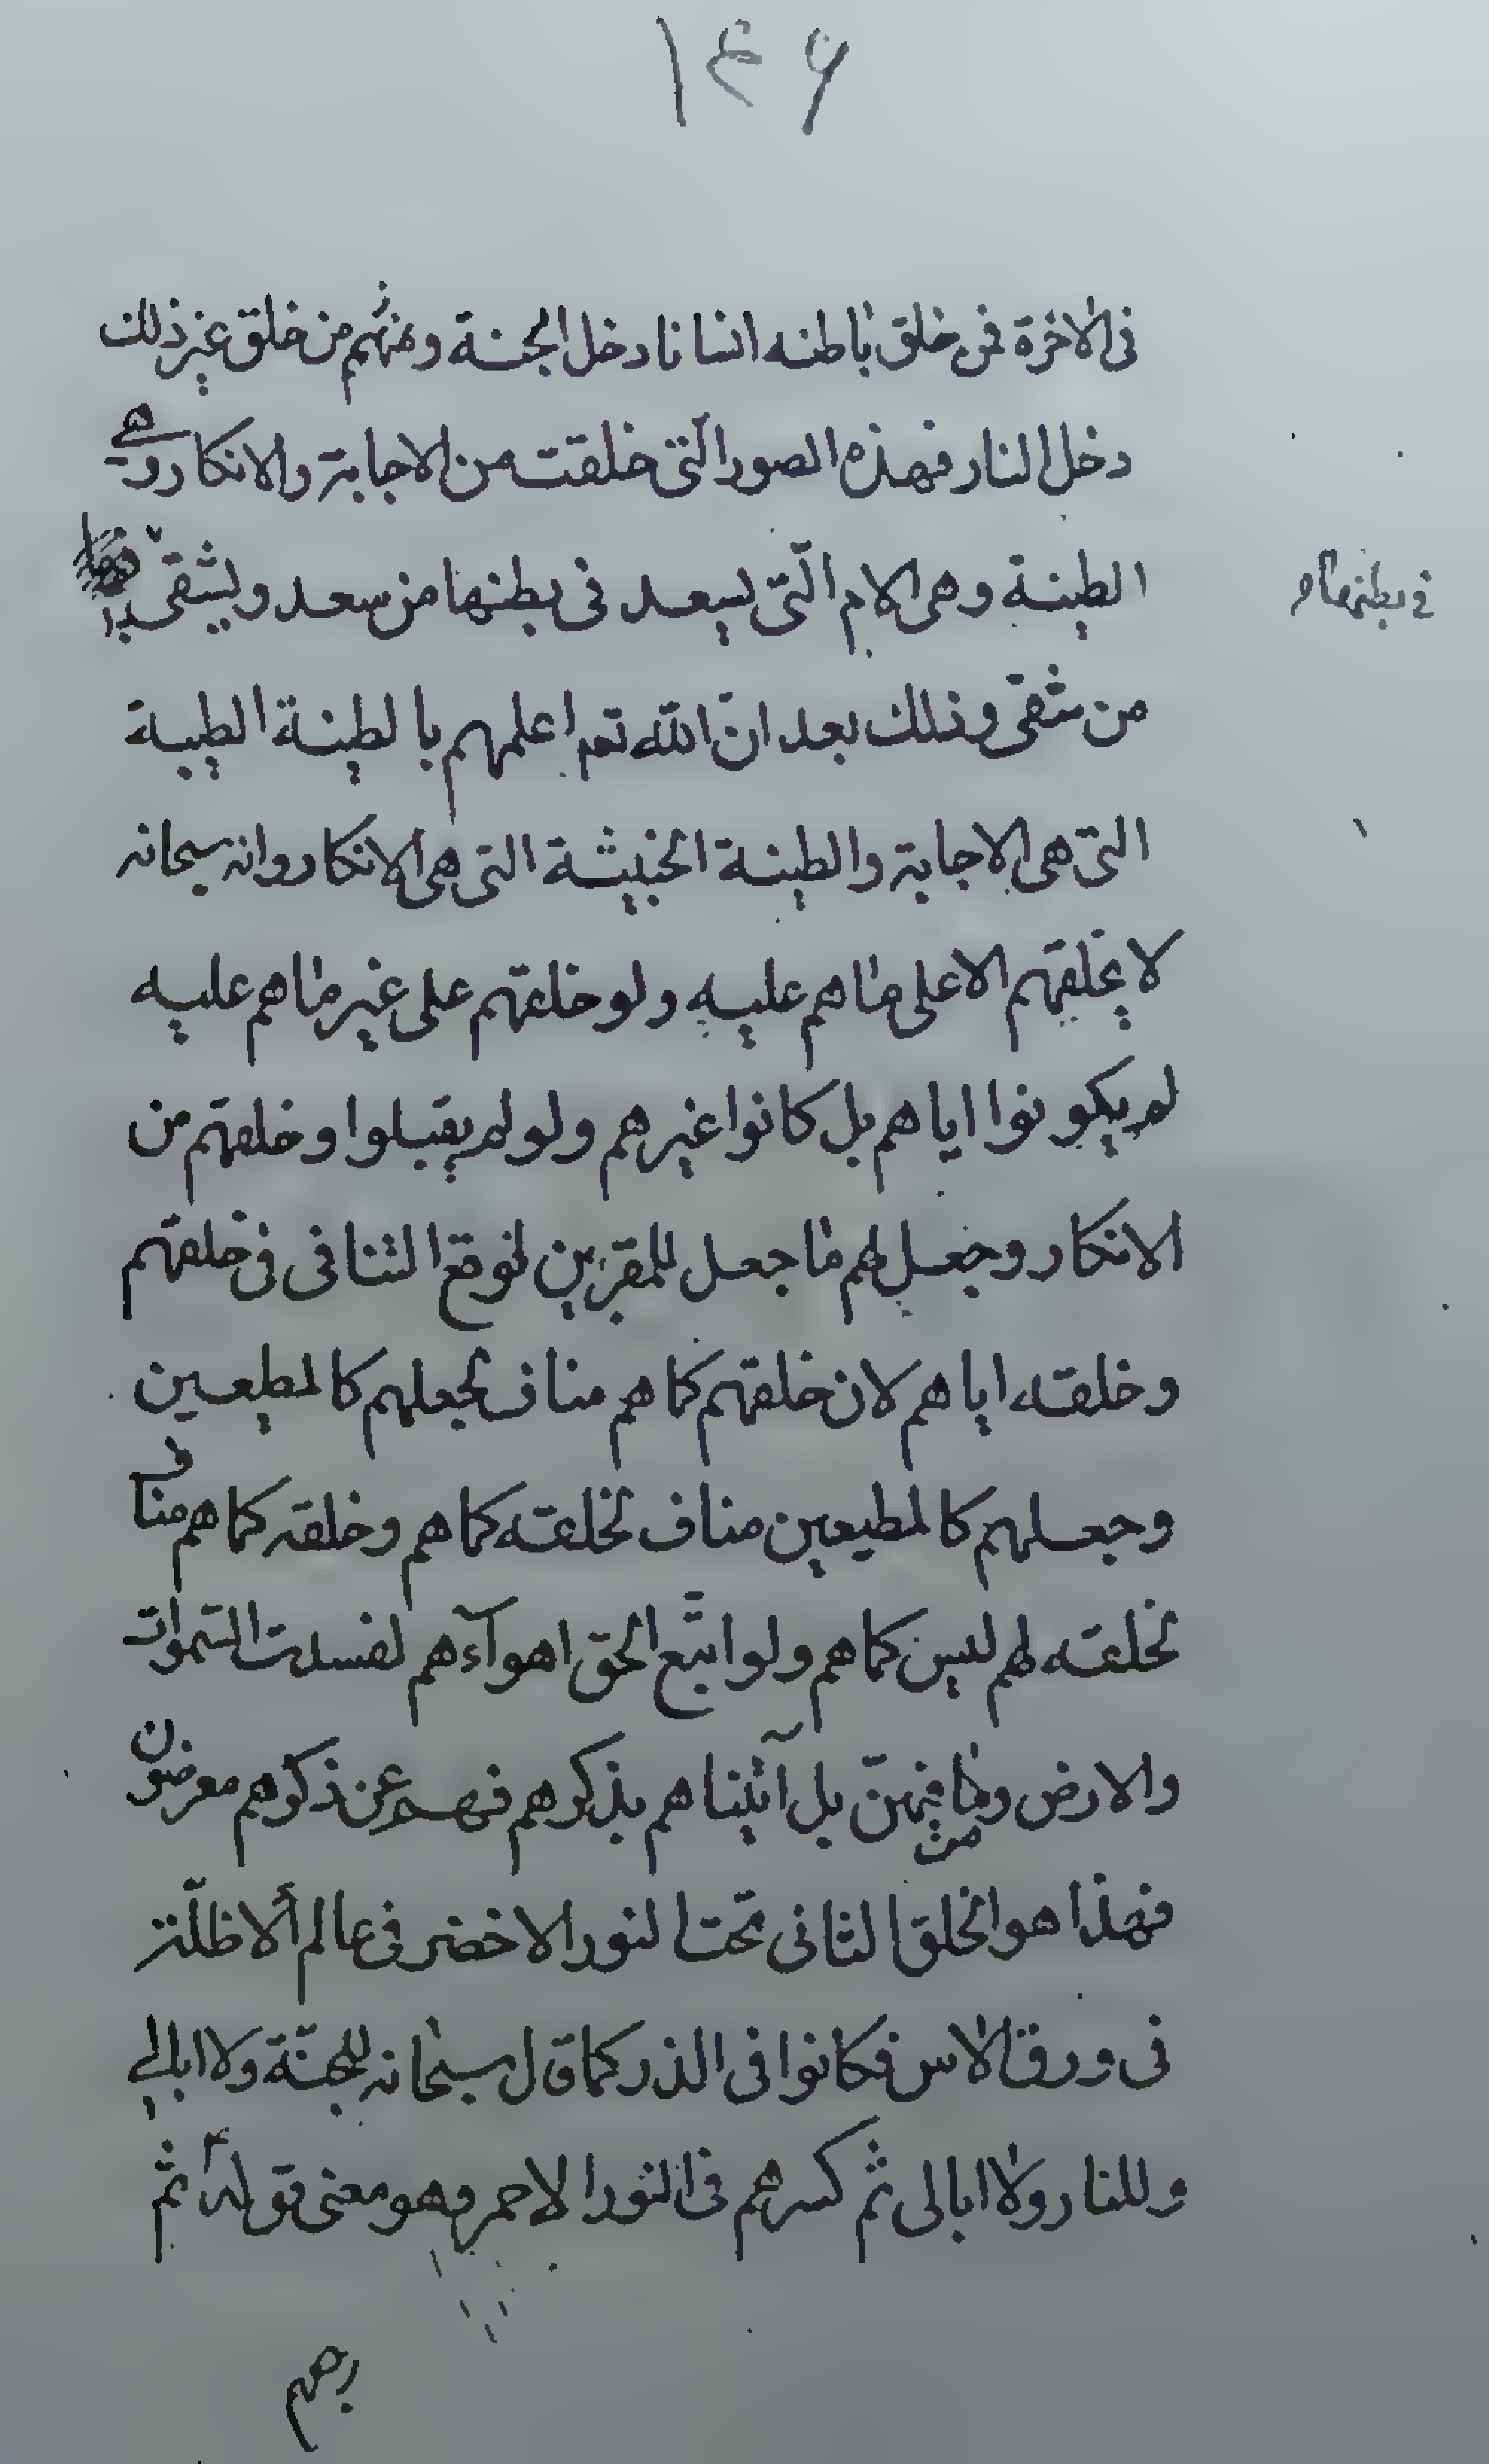 ١٤٦
فى الاخرة فمن خلق باطنه انسانا دخل الجنة ومنهم من خلق غير ذلك
دخل النار فهذه الصور الّتى خلقت من الاجابة والانكار هى
الطينة وهى الام الّتى يسعد فى بطنها من سعد ويشقى
فى بطنها
من شقى وذلك بعد انّ الله تعم اعلمهم بالطينة الطيبة
التى هى الاجابة والطينة الخبيثة التى هى الانكار وانه سبحانه
لا يخلقهم الا على ما هم عليه ولو خلقهم على غير ما هم عليه
لم يكونوا اياهم بل كانوا غيرهم ولو لم يقبلوا وخلقهم من
الانكار وجعل لهم ما جعل للمقربين لوقع التنافى فى خلقهم
وخلقه اياهم لان خلقهم كما هم مناف لجعلهم كالمطيعين
وجعلهم كالمطيعين مناف لخلقه كما هم وخلقه كما هم مناف
لخلقه لهم ليس كما هم ولو اتّبع الحق اهوآءهم لفسدت السّموات
والارض ومن فيهنّ بل آتيناهم بذكرهم فهم عن ذكرهم معرضون
فهذا هو الخلق الثانى تحت النور الاخضر فى عالم الاظلّة
فى ورق الاس فكانوا فى الذر كما قال سبحانه للجنّة ولا ابالى
وللنار ولا ابالى ثم كسرهم فى النور الاحمر وهو معنى قوله ثم
رجعهم